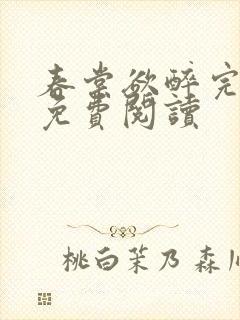 春棠欲醉完
免費閱讀
桃白茉乃 森川